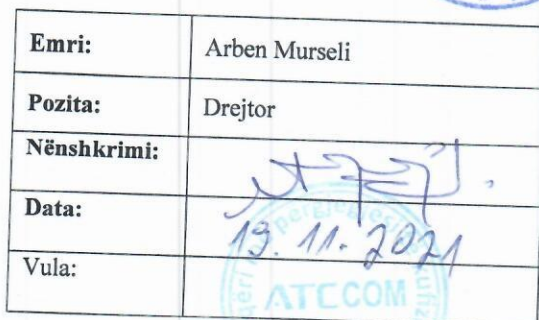 Emri: Arben Murseli
Pozita: Drejtor
Nënshkrimi:
Data: 19. 11. 2021
Vula: ATECCOM